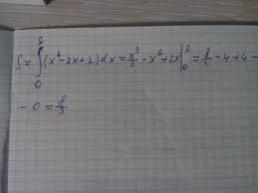 S = ∫₀² (x² - 2x + 2) dx = x³/3 - x² + 2x |₀² = 8/3 - 4 + 4 -
- 0 = 8/3